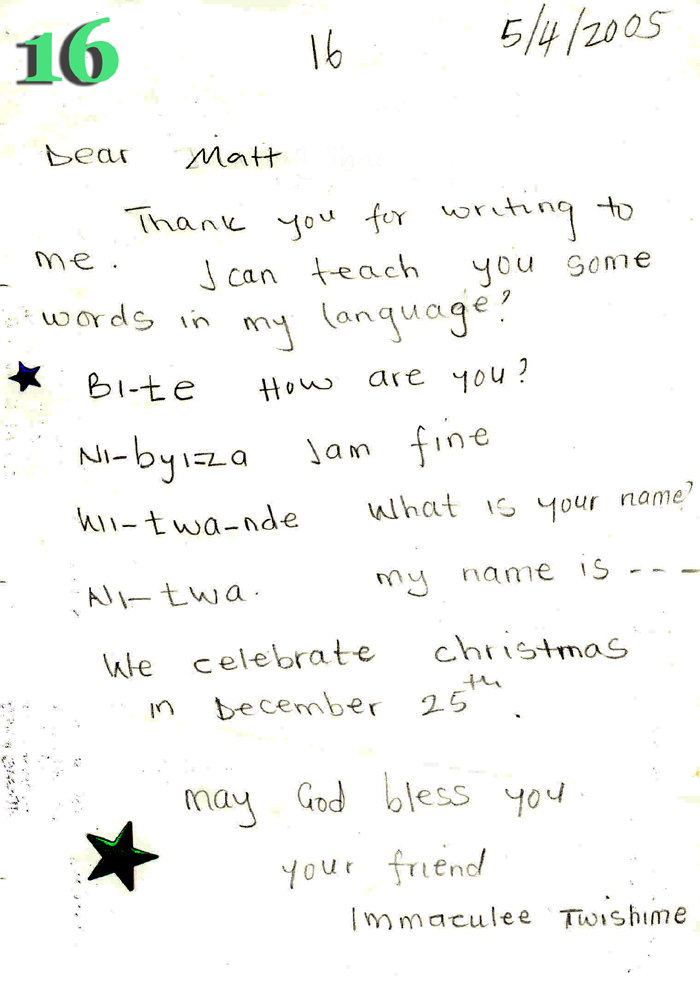 16
16
5/4/2005
Dear Matt
Thank you for writing to
me. I can teach you some
words in my language?
BI-te How are you?
NI-byi=za I am fine
Wii-twa-nde What is your name?
NI-twa. my name is ---
We celebrate christmas
in December 25th.
may God bless you
your friend
Immaculee Twishime